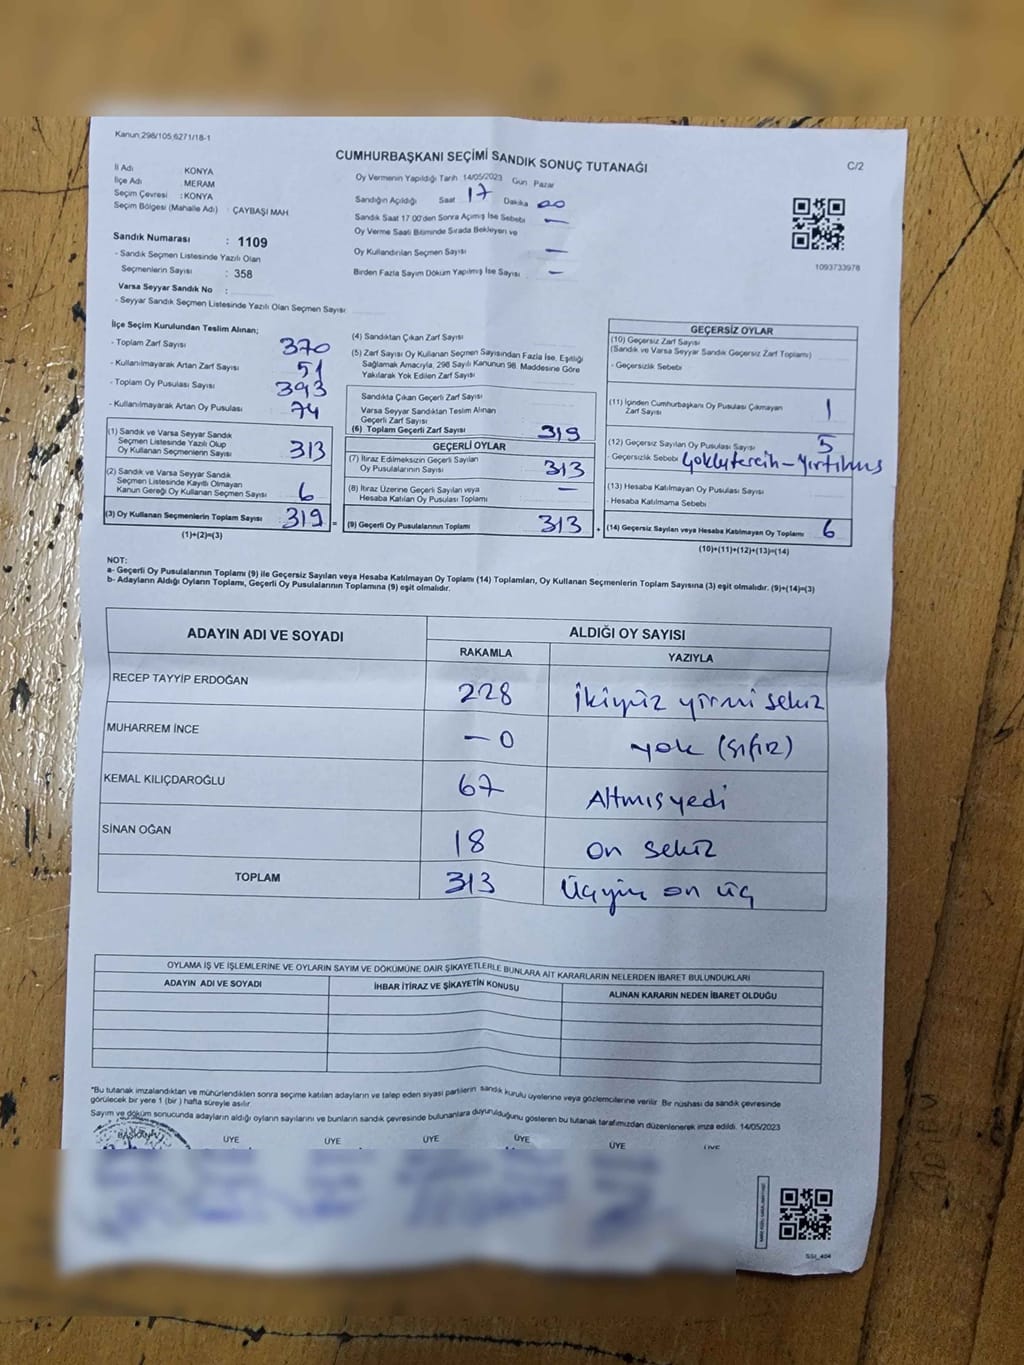 Kanun:298/105,6271/18-1
CUMHURBAŞKANI SEÇİMİ SANDIK SONUÇ TUTANAĞI
C/2
İl Adı KONYA
İlçe Adı : MERAM
Seçim Çevresi : KONYA
Seçim Bölgesi (Mahalle Adı) : ÇAYBAŞI MAH.
Sandık Numarası : 1109
- Sandık Seçmen Listesinde Yazılı Olan
Seçmenlerin Sayısı : 358
Varsa Seyyar Sandık No :
- Seyyar Sandık Seçmen Listesinde Yazılı Olan Seçmen Sayısı:
Oy Vermenin Yapıldığı Tarih 14/05/2023 Gün Pazar
Sandığın Açıldığı Saat 17 Dakika 00
Sandık Saat 17.00'den Sonra Açılmış İse Sebebi —
Oy Verme Saati Bitiminde Sırada Bekleyen ve
Oy Kullandırılan Seçmen Sayısı —
Birden Fazla Sayım Döküm Yapılmış İse Sayısı —
1093733978
İlçe Seçim Kurulundan Teslim Alınan;
- Toplam Zarf Sayısı 370
- Kullanılmayarak Artan Zarf Sayısı 51
- Toplam Oy Pusulası Sayısı 393
- Kullanılmayarak Artan Oy Pusulası 74
(1) Sandık ve Varsa Seyyar Sandık
Seçmen Listesinde Yazılı Olup
Oy Kullanan Seçmenlerin Sayısı 313
(2) Sandık ve Varsa Seyyar Sandık
Seçmen Listesinde Kayıtlı Olmayan
Kanun Gereği Oy Kullanan Seçmen Sayısı 6
(3) Oy Kullanan Seçmenlerin Toplam Sayısı 319 =
(1)+(2)=(3)
(4) Sandıktan Çıkan Zarf Sayısı
(5) Zarf Sayısı Oy Kullanan Seçmen Sayısından Fazla İse, Eşitliği
Sağlamak Amacıyla, 298 Sayılı Kanunun 98. Maddesine Göre
Yakılarak Yok Edilen Zarf Sayısı
Sandıkta Çıkan Geçerli Zarf Sayısı
Varsa Seyyar Sandıktan Teslim Alınan
Geçerli Zarf Sayısı
(6) Toplam Geçerli Zarf Sayısı 319
GEÇERLİ OYLAR
(7) İtiraz Edilmeksizin Geçerli Sayılan
Oy Pusulalarının Sayısı 313
(8) İtiraz Üzerine Geçerli Sayılan veya
Hesaba Katılan Oy Pusulası Toplamı —
(9) Geçerli Oy Pusulalarının Toplamı 313 +
GEÇERSİZ OYLAR
(10) Geçersiz Zarf Sayısı
(Sandık ve Varsa Seyyar Sandık Geçersiz Zarf Toplamı)
- Geçersizlik Sebebi
(11) İçinden Cumhurbaşkanı Oy Pusulası Çıkmayan
Zarf Sayısı 1
(12) Geçersiz Sayılan Oy Pusulası Sayısı 5
- Geçersizlik Sebebi Çoklu tercih - yırtılmış
(13) Hesaba Katılmayan Oy Pusulası Sayısı
- Hesaba Katılmama Sebebi
(14) Geçersiz Sayılan veya Hesaba Katılmayan Oy Toplamı 6
(10)+(11)+(12)+(13)=(14)
NOT:
a- Geçerli Oy Pusulalarının Toplamı (9) ile Geçersiz Sayılan veya Hesaba Katılmayan Oy Toplamı (14) Toplamları, Oy Kullanan Seçmenlerin Toplam Sayısına (3) eşit olmalıdır. (9)+(14)=(3)
b- Adayların Aldığı Oyların Toplamı, Geçerli Oy Pusulalarının Toplamına (9) eşit olmalıdır.
ADAYIN ADI VE SOYADI
ALDIĞI OY SAYISI
RAKAMLA YAZIYLA
RECEP TAYYİP ERDOĞAN 228 ikiyüz yirmi sekiz
MUHARREM İNCE — 0 yok (sıfır)
KEMAL KILIÇDAROĞLU 67 Altmış yedi
SİNAN OĞAN 18 on sekiz
TOPLAM 313 Üçyüz on üç
OYLAMA İŞ VE İŞLEMLERİNE VE OYLARIN SAYIM VE DÖKÜMÜNE DAİR ŞİKAYETLERLE BUNLARA AİT KARARLARIN NELERDEN İBARET BULUNDUKLARI
ADAYIN ADI VE SOYADI İHBAR İTİRAZ VE ŞİKAYETİN KONUSU ALINAN KARARIN NEDEN İBARET OLDUĞU
*Bu tutanak imzalandıktan ve mühürlendikten sonra seçime katılan adayların ve talep eden siyasi partilerin sandık kurulu üyelerine veya gözlemcilerine verilir. Bir nüshası da sandık çevresinde
görülecek bir yere 1 (bir) hafta süreyle asılır.
Sayım ve döküm sonucunda adayların aldığı oyların sayılarını ve bunların sandık çevresinde bulunanlara duyurulduğunu gösteren bu tutanak tarafımızdan düzenlenerek imza edildi. 14/05/2023
BAŞKAN ÜYE ÜYE ÜYE ÜYE ÜYE ÜYE